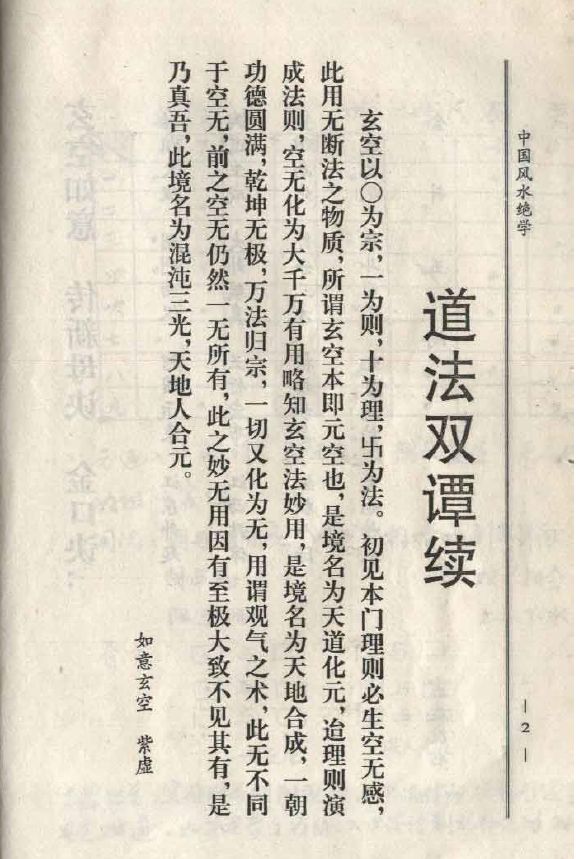 中国风水绝学
—2—
道法双谭续
玄空以〇为宗，一为则，十为理，卐为法。初见本门理则必生空无感，
此用无断法之物质，所谓玄空本即元空也，是境名为天道化元，迨理则演
成法则，空无化为大千万有用略知玄空法妙用，是境名为天地合成，一朝
功德圆满，乾坤无极，万法归宗，一切又化为无，用谓观气之术，此无不同
于空无，前之空无仍然一无所有，此之妙无用因有至极大致不见其有，是
乃真吾，此境名为混沌三光，天地人合元。
如意玄空 紫虚